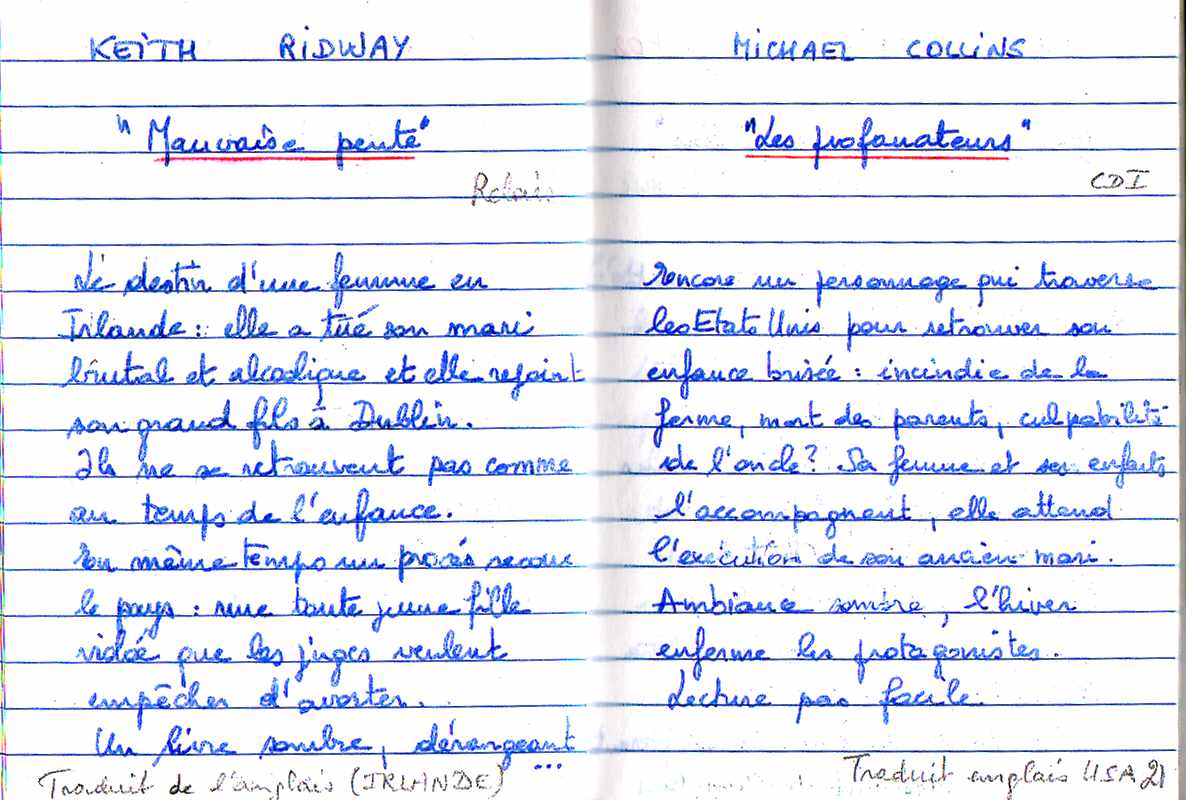 KEITH RIDWAY
"Mauvaise pente"
Relais
Le destin d'une femme en
Irlande : elle a tué son mari
brutal et alcoolique et elle rejoint
son grand fils à Dublin.
Ils ne se retrouvent pas comme
au temps de l'enfance.
En même temps un procés secoue
le pays : une toute jeune fille
violée que les juges veulent
empêcher d'avorter.
Un livre sombre, dérangeant
...
Traduit de l'anglais (IRLANDE)
MICHAEL COLLINS
"Les profanateurs"
CDI
Encore un personnage qui traverse
les Etats Unis pour retrouver son
enfance brisée : incindie de la
ferme, mort des parents, culpabilité
de l'oncle ? Sa femme et ses enfants
l'accompagnent, elle attend
l'exécution de son ancien mari.
Ambiance sombre, l'hiver
enferme les protagonistes.
Lecture pas facile.
Traduit anglais USA 21